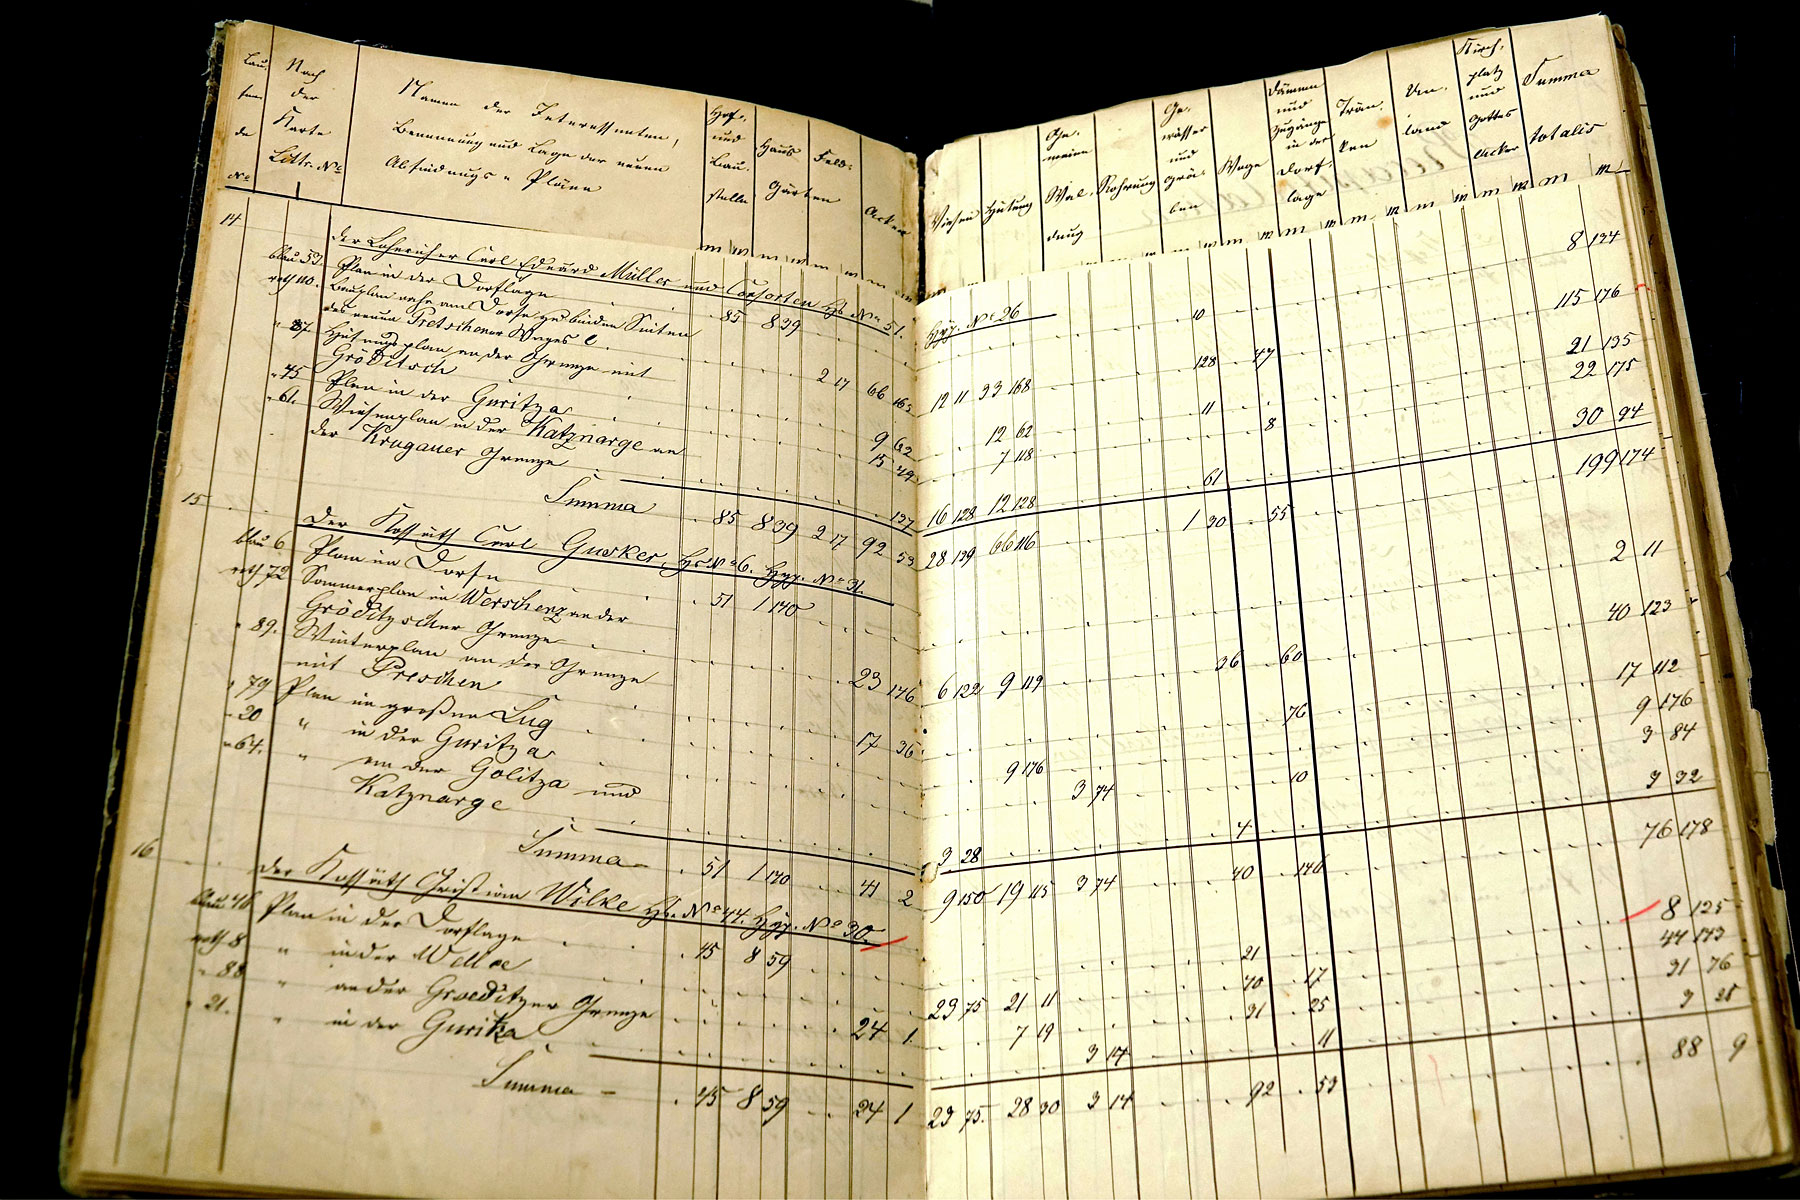 Lau-
fen-
de
No
Nach
der
Karte
Littr. No
Namen der Interessenten,
Benennung und Lage der neuen
Abfindungs-Pläne
Hof-
und
Bau-
stelle
Haus
Gärten
Feld-
Acker
Wiesen
Hütung
Ge-
meine
Wal-
dung
Rohrung
Ge-
wässer
und
Grä-
ben
Wege
Dämme
und
Zugänge
in der
Dorf-
lage
Trän-
ken
Un-
land
Kirch-
platz
und
Gottes
Acker
Summa
totalis
14
Carl Eduard Müller und Consorten Hs No 51. Hyp. No 26
blau 53. Plan in der Dorflage 85 8 39 10 8 134
roth 110. Bauplan nahe am Dorfe zu beiden Seiten
des neuen Pretschener Weges 2 17 66 163 12 11 33 168 128 47 115 176
" 87. Hütungsplan an der Grenze mit
Gröditsch 9 62 12 62 11 21 135
" 75 Plan in der Guritza 15 49 7 118 8 22 175
" 61. Wiesenplan in der Katznarge an
der Krugauer Grenze 137 16 128 12 128 61 30 94
Summa 85 8 39 2 17 92 53 28 139 66 116 1 30 55 199 174
15
Der Kossäth Carl Gusker, Hs No 6. Hyp. No 31.
blau 6 Plan im Dorfe 51 1 140 2 11
roth 72 Sommerplan in Werschenz an der
Gröditzscher Grenze 23 146 6 122 9 119 36 60 40 123
" 89. Winterplan an der Grenze
mit Preschen 17 36 76 17 112
" 79 Plan im großen Lug 9 176 9 176
" 20 " in der Guritza 3 74 10 3 84
" 64. " in der Golitza und
Katznarge 3 28 4 3 32
Summa 51 1 140 41 2 9 150 19 115 3 74 40 146 76 178
16
Der Kossäth Christian Wilke Hs. No 44. Hyp. No 30.
blau 46 Plan in der Dorflage 45 8 59 21 8 125
roth 8 " in der Welloe 23 75 21 11 40 17 44 143
" 88 " an der Groeditzer Grenze 24 1 7 19 31 25 31 76
" 21. " in der Guritza 3 14 11 3 25
Summa 45 8 59 24 1 23 75 28 30 3 14 92 53 88 9